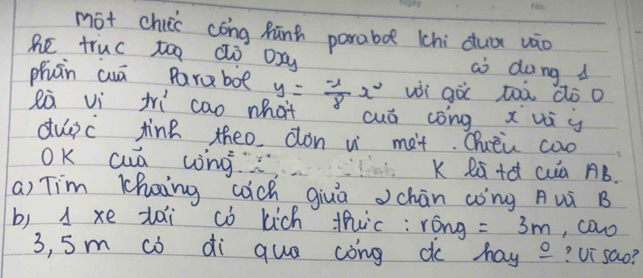 một chiếc cổng hình parabol khi đưa vào
hệ trục toạ độ Oxy có dạng 1
phần của Parabol y = -1/8 x² với gốc toạ độ O
là vị trí cao nhất của cổng x và y
được tính theo đơn vị mét. Chiều cao
OK của cổng K là tđ của AB.
a) Tìm khoảng cách giữa 2 chân cổng A và B
b) 1 xe tải có kích thức : rộng = 3m, cao
3,5m có đi qua cổng đc hay o ? Vì sao?